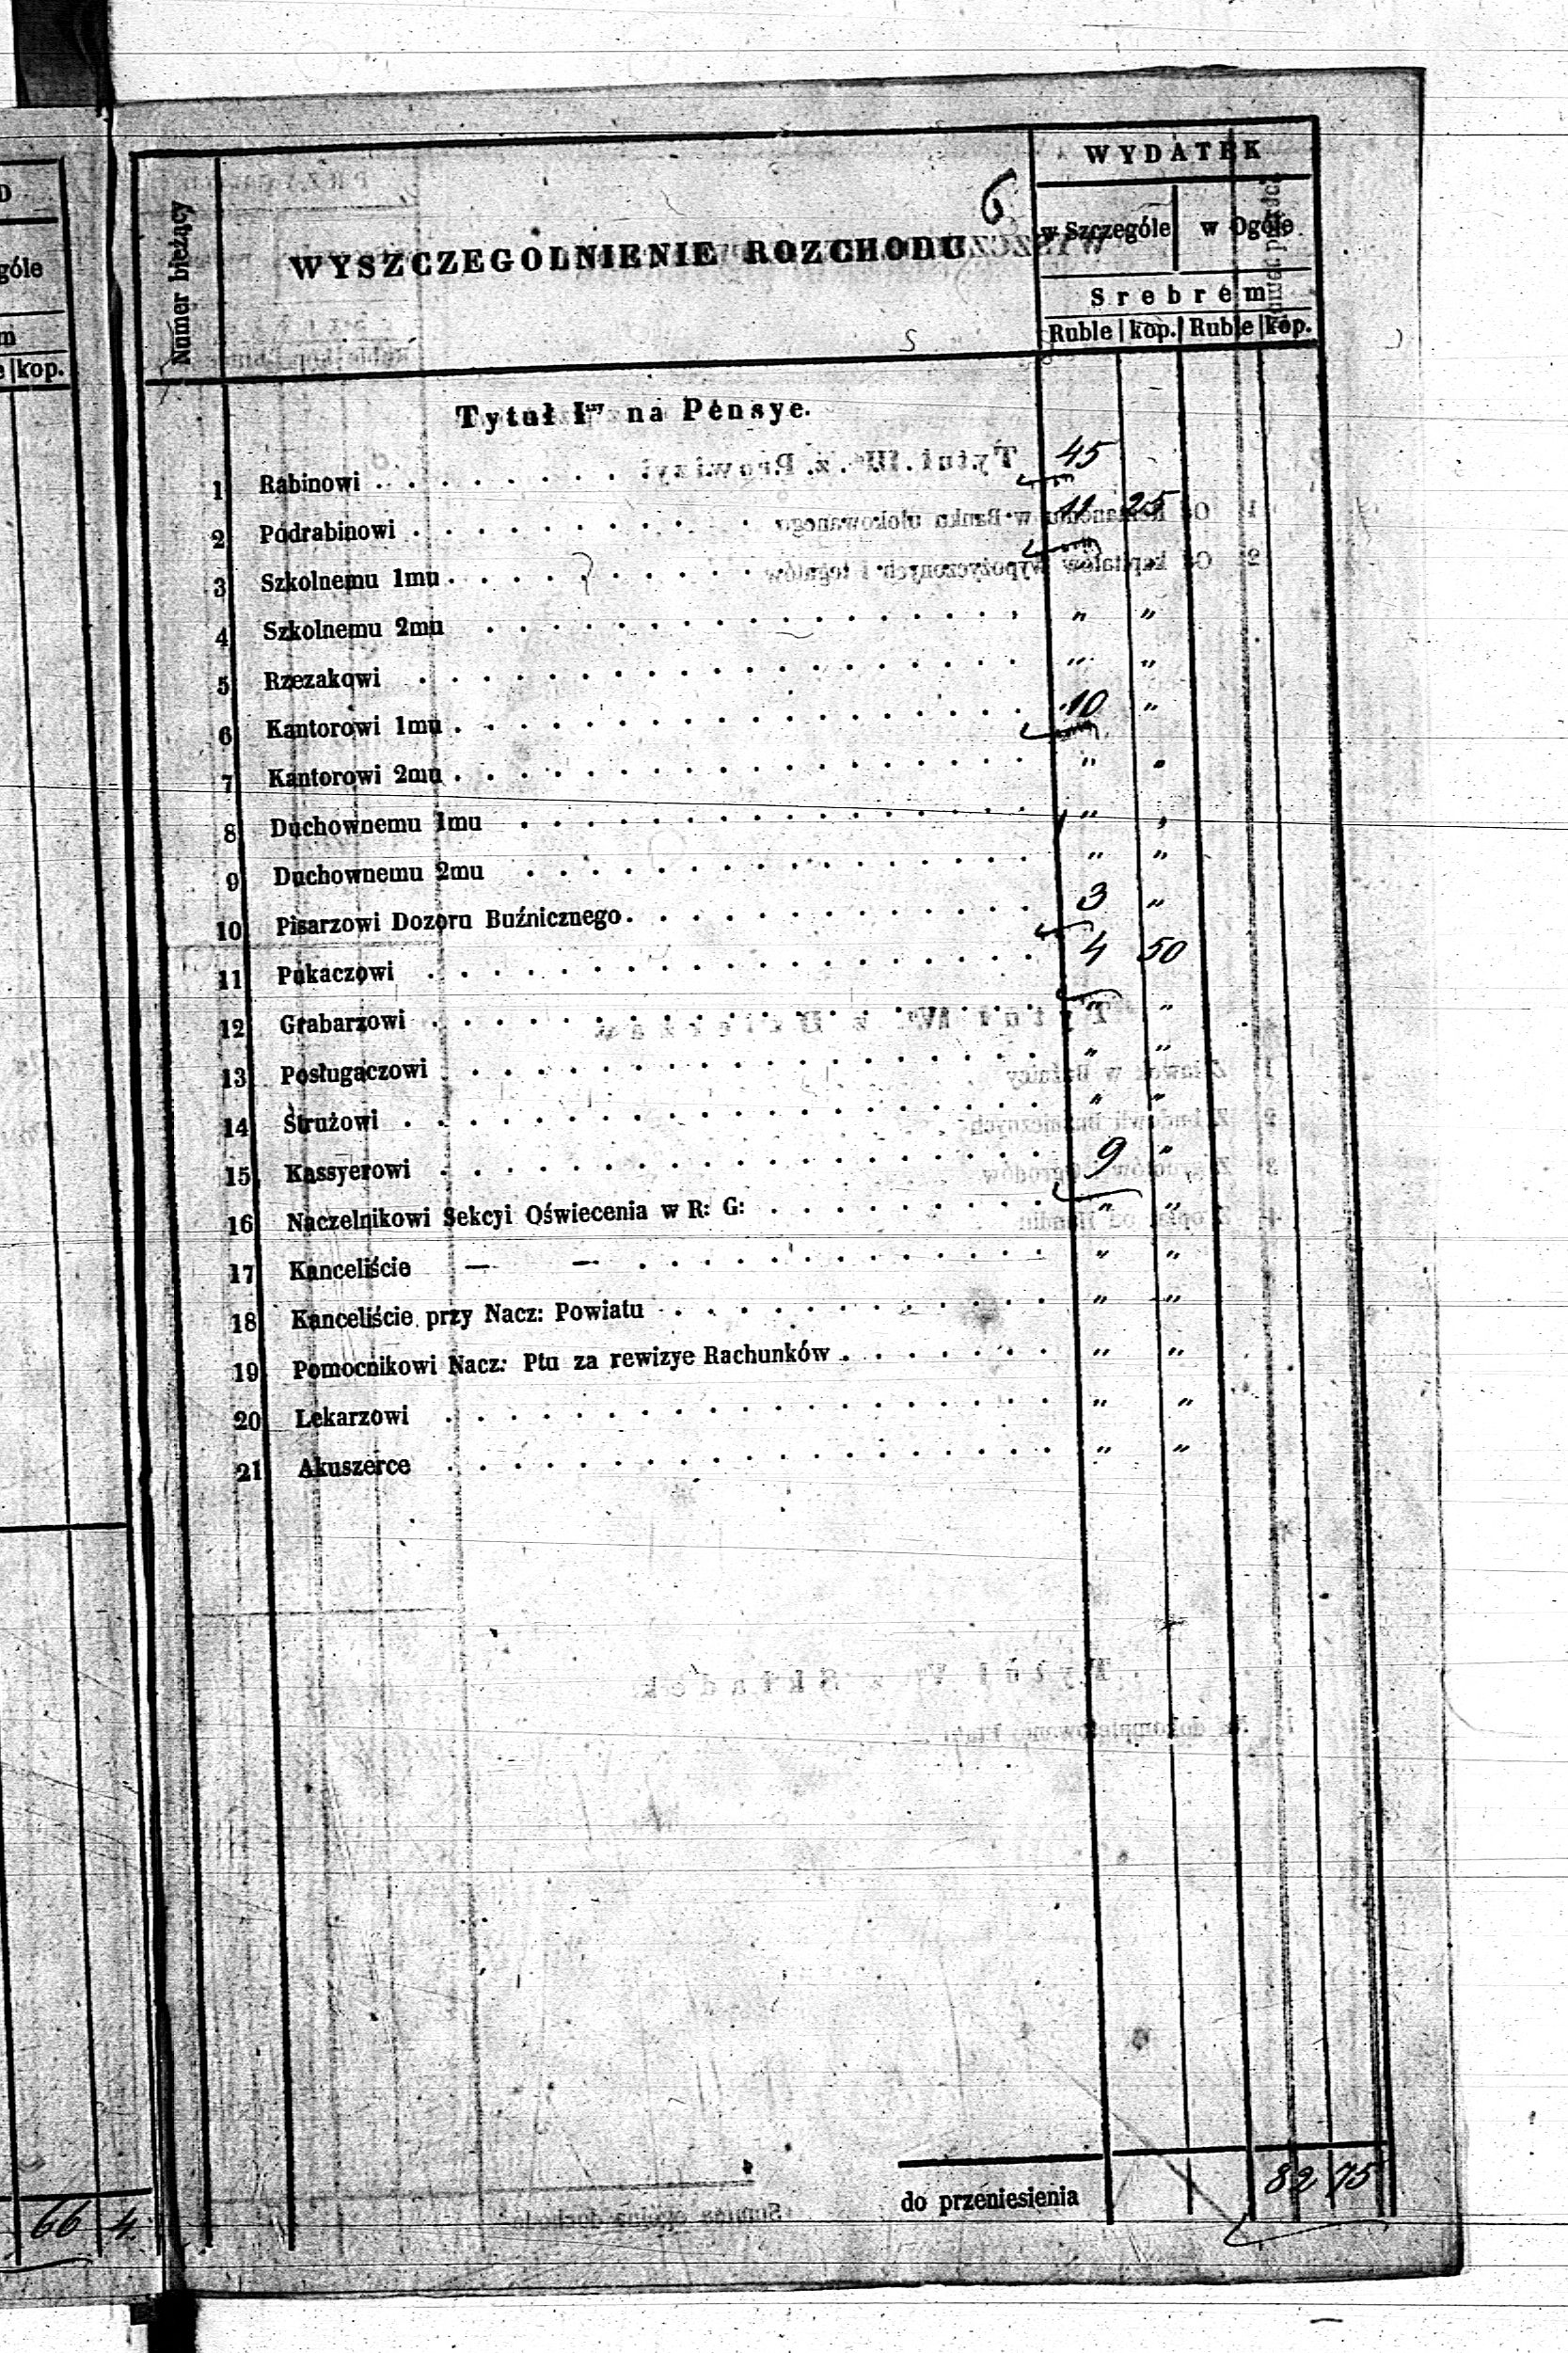 6
WYDATEK
Numer bieżący
WYSZCZEGOLNIENIE ROZCHODU
w Szczególe w Ogóle
Srebrem
Ruble kop. Ruble kop.
Tytuł Iszy na Pensye.
1 Rabinowi . . . . . . . . 45
2 Podrabinowi . . . . . . . . 11 25
3 Szkolnemu 1mu . . . . . . . .
4 Szkolnemu 2mu . . . . . . . . " "
5 Rzezakowi . . . . . . . . " "
6 Kantorowi 1mu . . . . . . . . 10 "
7 Kantorowi 2mu . . . . . . . . " "
8 Duchownemu 1mu . . . . . . . . " "
9 Duchownemu 2mu . . . . . . . . " "
10 Pisarzowi Dozoru Buźnicznego . . . . . . . . 3 "
11 Pukaczowi . . . . . . . . 4 50
12 Grabarzowi . . . . . . . . " "
13 Posługaczowi . . . . . . . . " "
14 Strużowi . . . . . . . . " "
15 Kassyerowi . . . . . . . . 9 "
16 Naczelnikowi Sekcyi Oświecenia w R: G: . . . . . . . . " "
17 Kanceliście — — . . . . . . . . " "
18 Kanceliście przy Nacz: Powiatu . . . . . . . . " "
19 Pomocnikowi Nacz: Ptu za rewizye Rachunków . . . . . . . " "
20 Lekarzowi . . . . . . . . " "
21 Akuszerce . . . . . . . . " "
do przeniesienia 82 75
góle
kop.
66 4